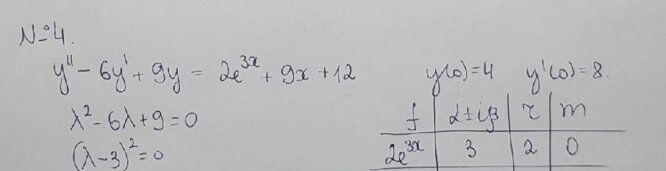 №4.
y'' - 6y' + 9y = 2e^{3x} + 9x + 12   y(0)=4   y'(0)=8.
λ² - 6λ + 9 = 0
(λ-3)² = 0
f | α±iβ | r | m
2e^{3x} | 3 | 2 | 0